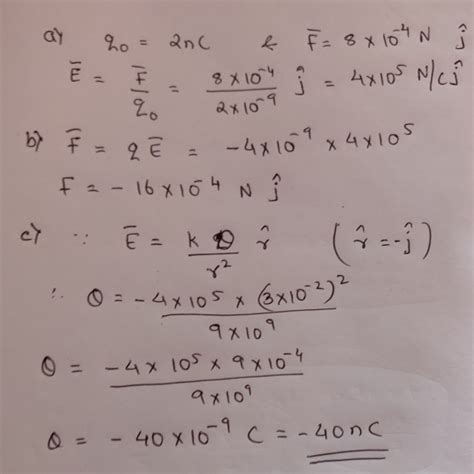 a) q₀ = 2nC & F̄ = 8×10⁻⁴ N ĵ
Ē = F̄/q₀ = 8×10⁻⁴/2×10⁻⁹ ĵ = 4×10⁵ N/C ĵ
b) F̄ = qĒ = -4×10⁻⁹ × 4×10⁵
F = -16×10⁻⁴ N ĵ
c) ∵ Ē = kQ/r² r̂ (r̂ = -ĵ)
∴ Q = -4×10⁵ × (3×10⁻²)²/9×10⁹
Q = -4×10⁵ × 9×10⁻⁴/9×10⁹
Q = -40×10⁻⁹ C = -40nC